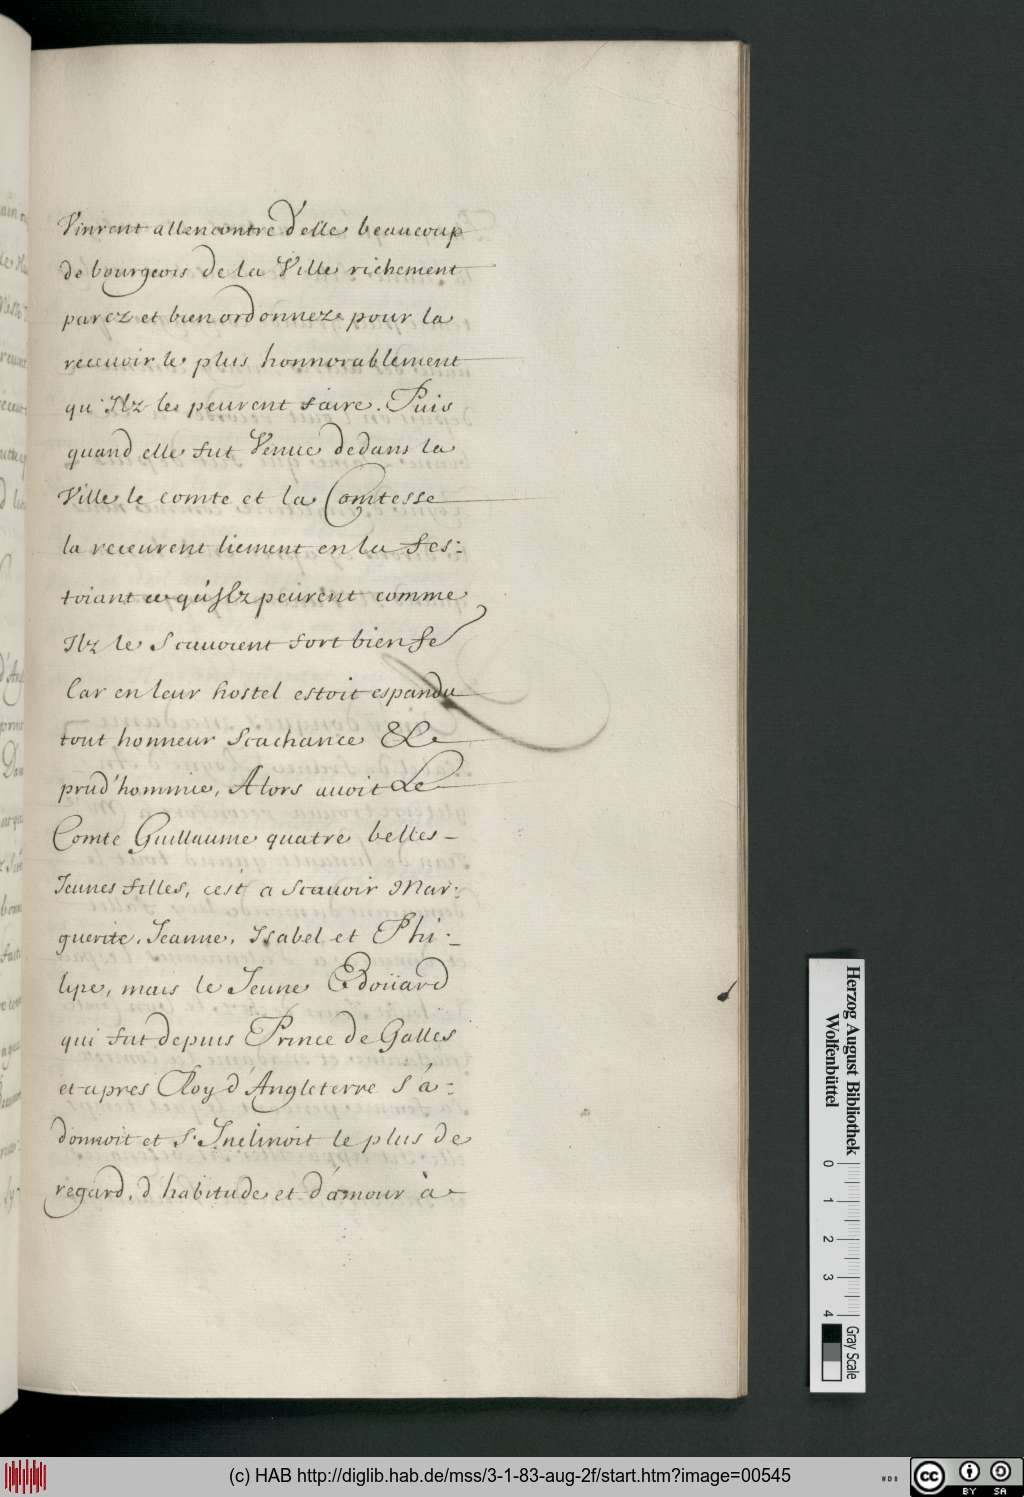 Vinrent allencontre d'elle beaucoup
de bourgeois de la Ville richement
parez et bien ordonnez pour la
receuoir le plus honnorablement
qu'Ilz le peurent faire. Puis
quand elle fut Venue dedans la
Ville le comte et la Comtesse
la receurent liement en la fes:
toiant ce qu'Ilz peurent comme
Ilz le scauoient fort bien fe
Car en leur hostel estoit espandu
tout honneur sciachance & Le
prud'hommie, Alors auoit Le
Comte Guillaume quatre belles
Jeunes filles, cest a scauoir Mar:
guerite, Jeanne, Isabel et Phi:
lipe, mais le Jeune Edoüard
qui fut depuis Prince de Galles
et apres Roy d'Angleterre s'a:
donnoit et s'Inclinoit le plus de
regard, d'habitude et d'amour à
Herzog August Bibliothek
Wolfenbüttel
0 1 2 3 4
Gray Scale
(c) HAB http://diglib.hab.de/mss/3-1-83-aug-2f/start.htm?image=00545
WDB
cc BY SA